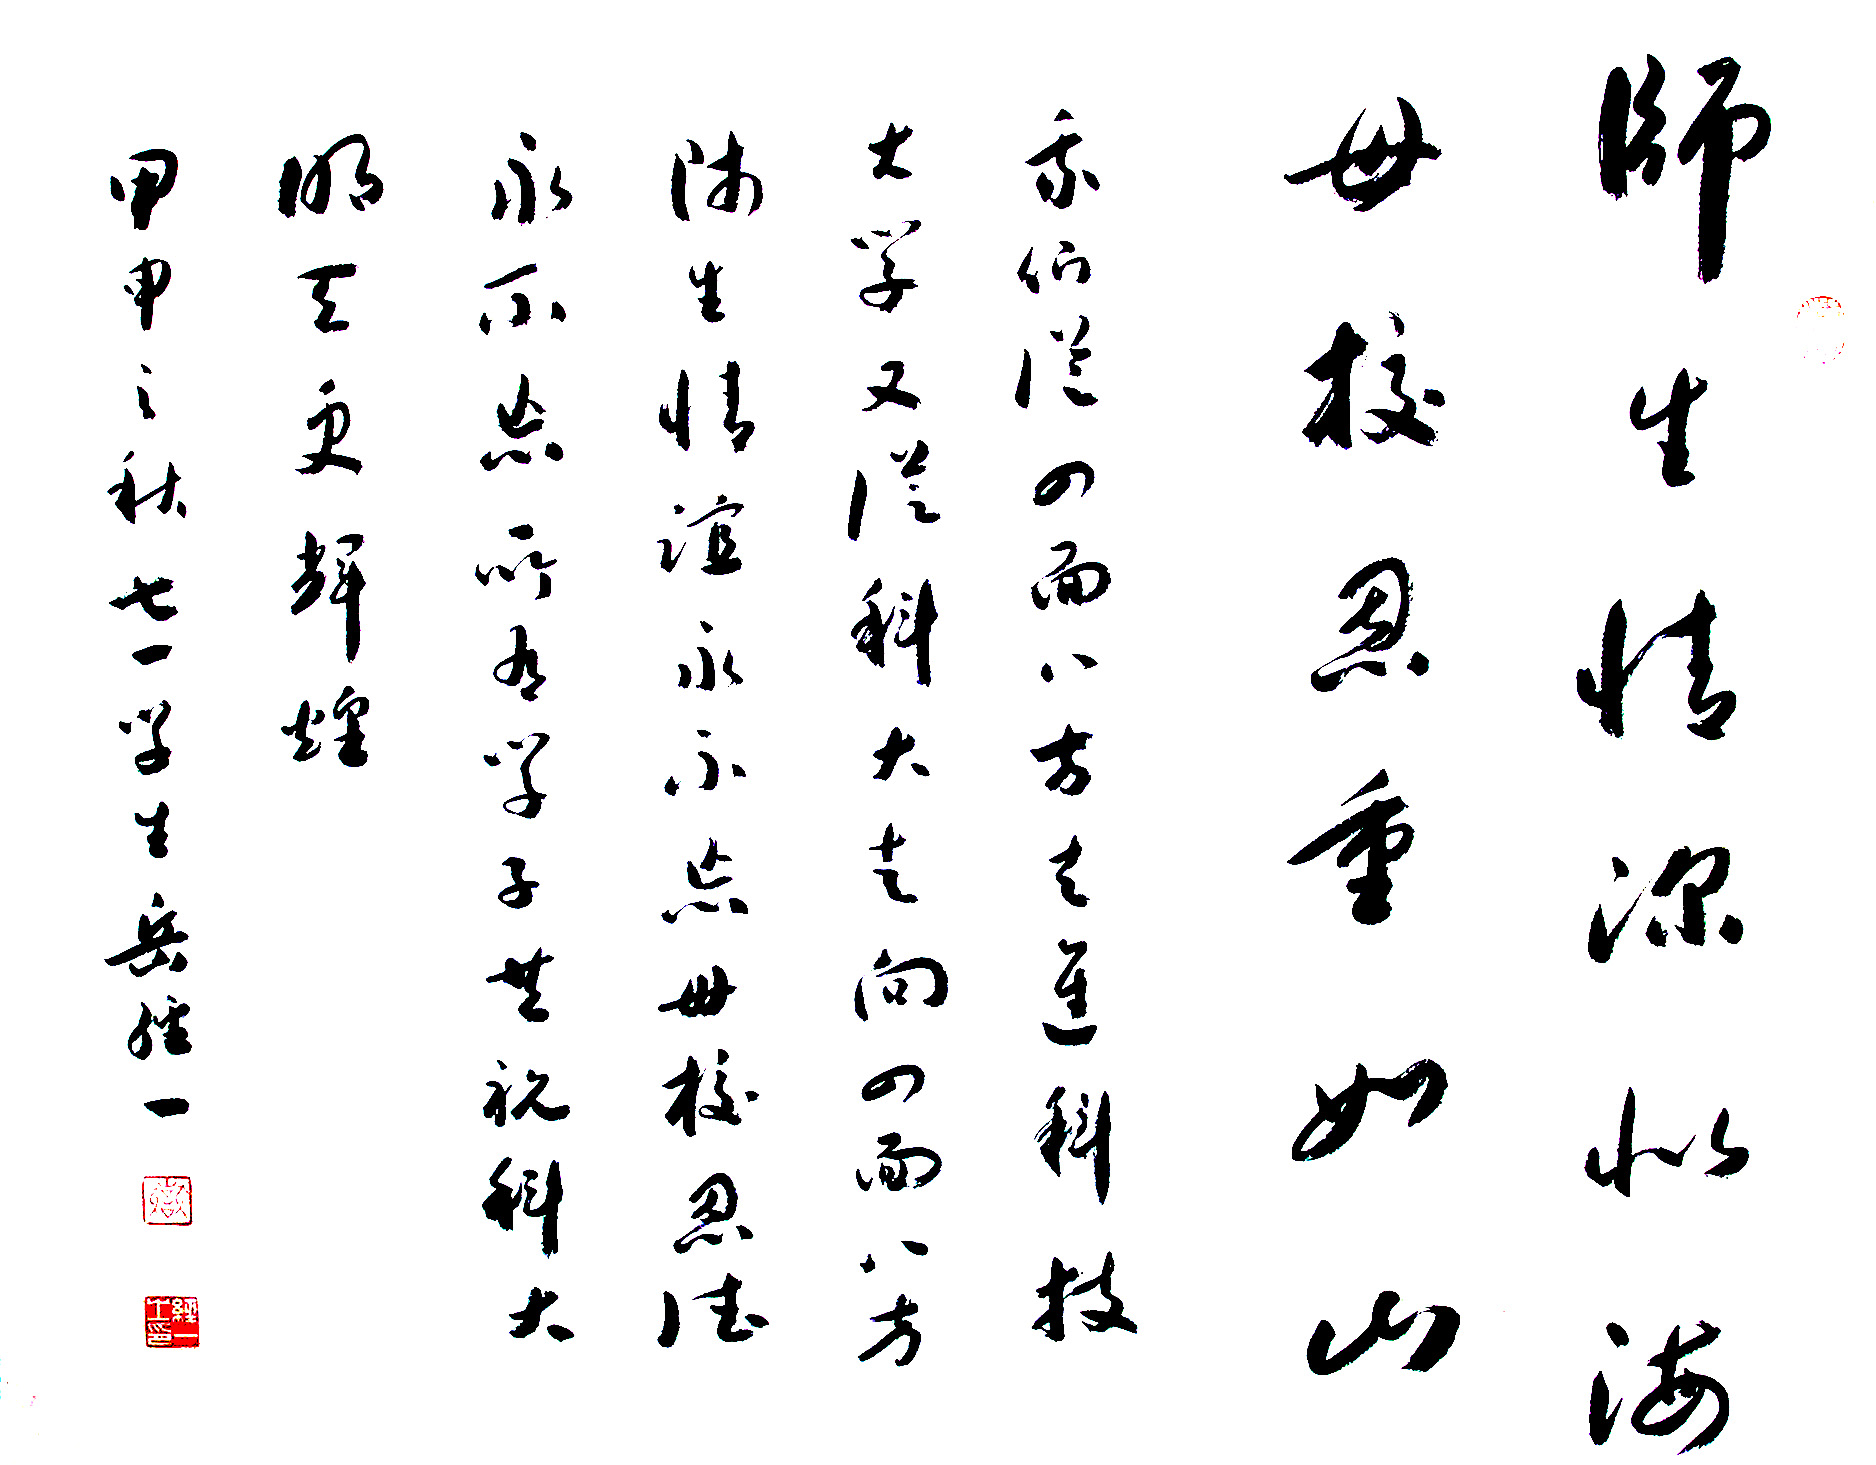 師生情深似海
母校恩重如山
我们從四面八方走進科技
大学又從科大走向四面八方
师生情谊永不忘母校恩德
永不忘所有学子共祝科大
明天更辉煌
甲申之秋七一学生岳經一